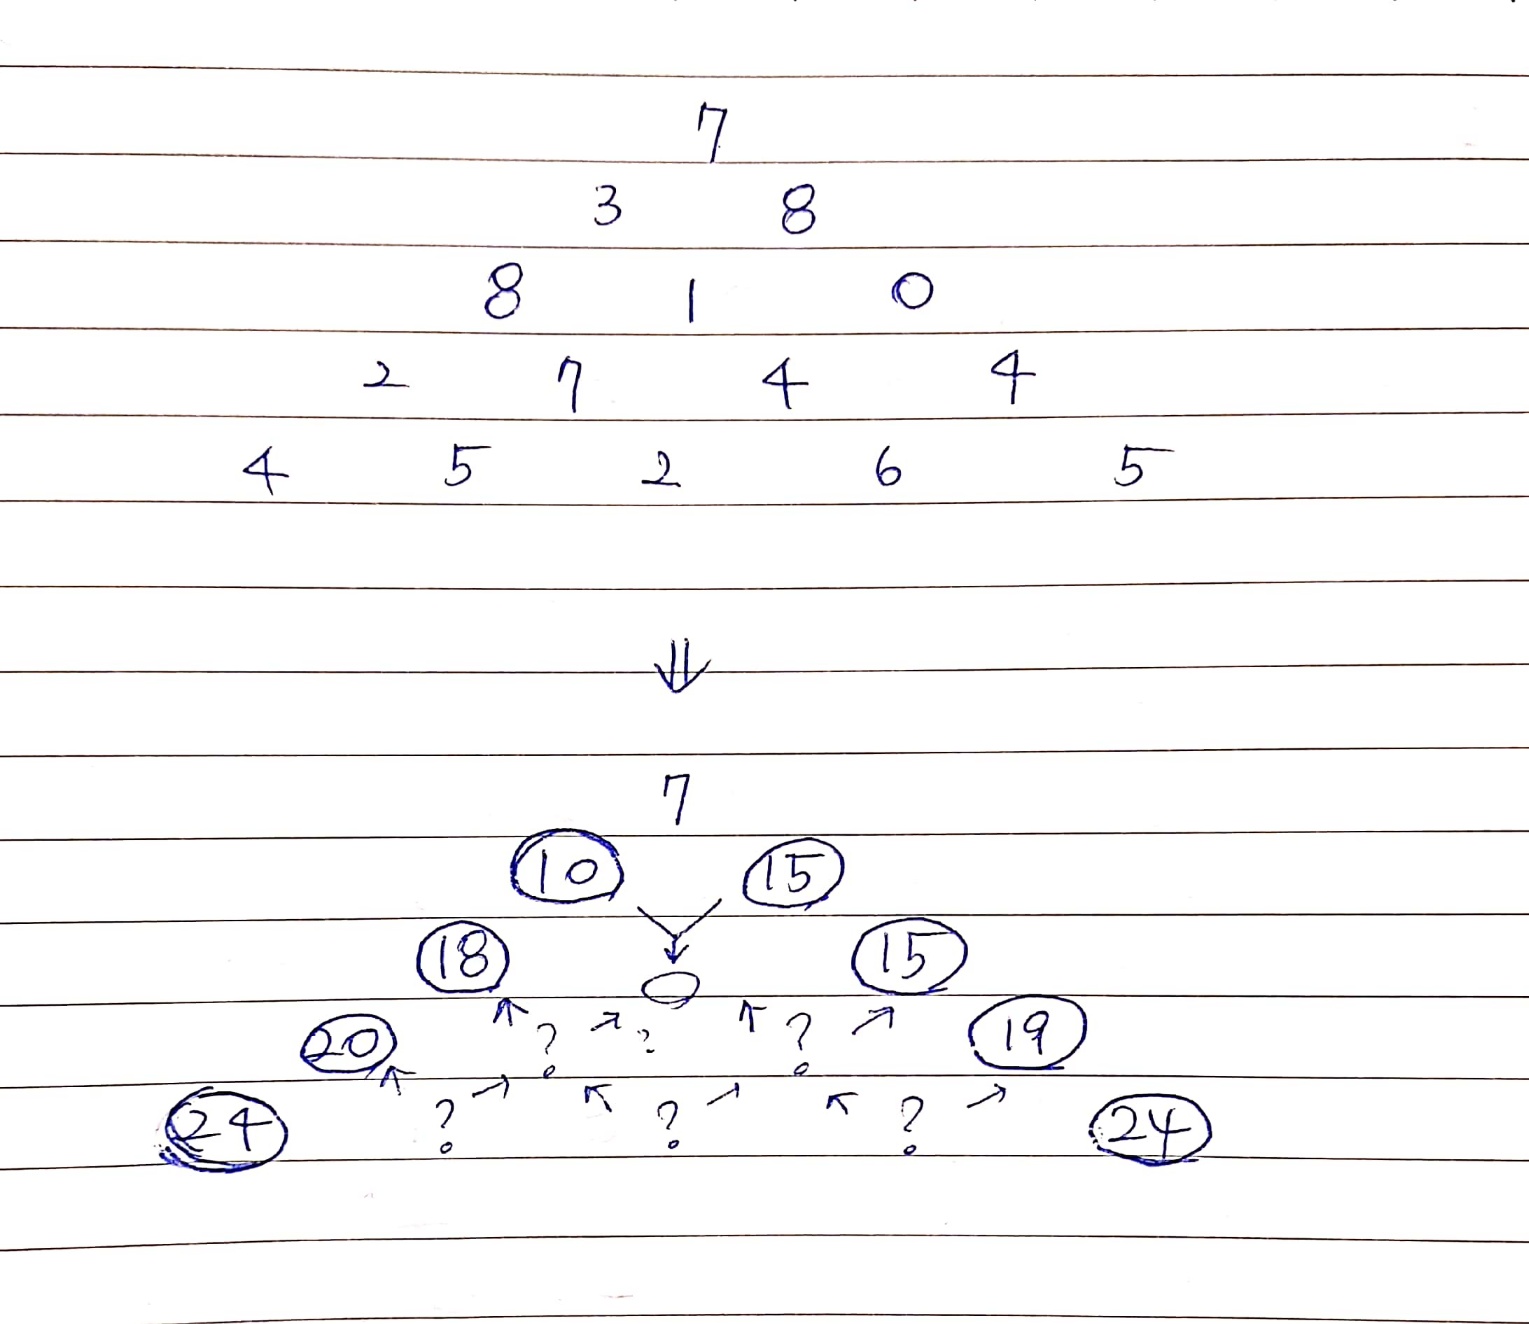 7
3 8
8 1 0
2 7 4 4
4 5 2 6 5
⇓
7
10 15
18 15
? ? ?
20 19
24 ? ? ? 24